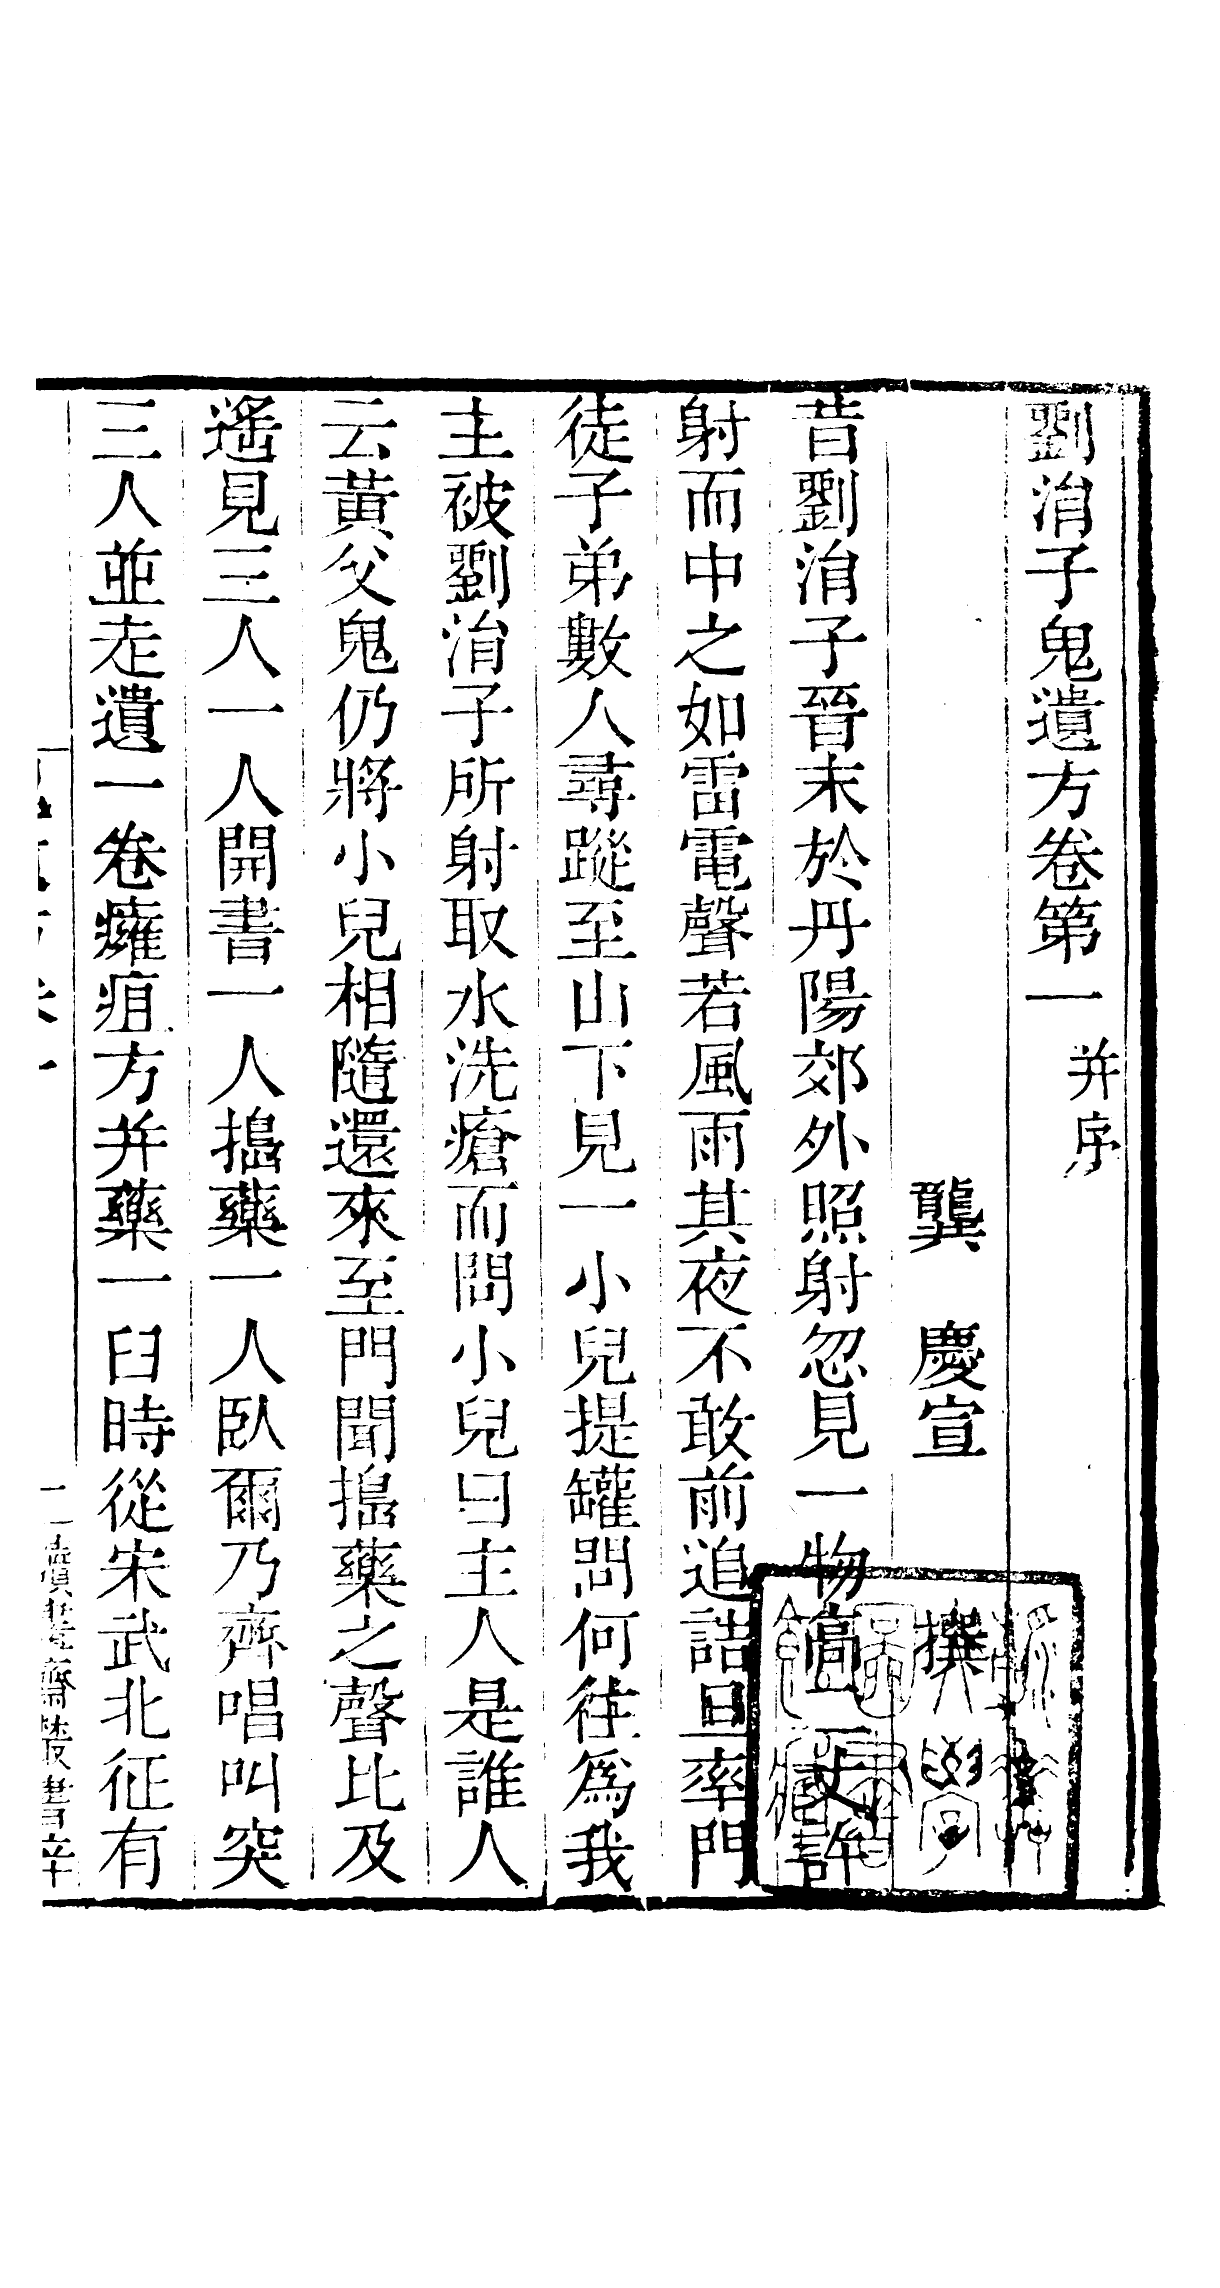 劉涓子鬼遺方卷第一并序
龔慶宣撰
昔劉涓子晉末於丹陽郊外照射忽見一物高二丈許
射而中之如雷電聲若風雨其夜不敢前追詰旦率門
徒子弟數人尋蹤至山下見一小兒提罐問何往爲我
主被劉涓子所射取水洗瘡而問小兒曰主人是誰人
云黃父鬼仍將小兒相隨還來至門聞搗藥之聲比及
遙見三人一人開書一人搗藥一人臥爾乃齊唱叫突
三人並走遺一卷癰疽方并藥一臼時從宋武北征有